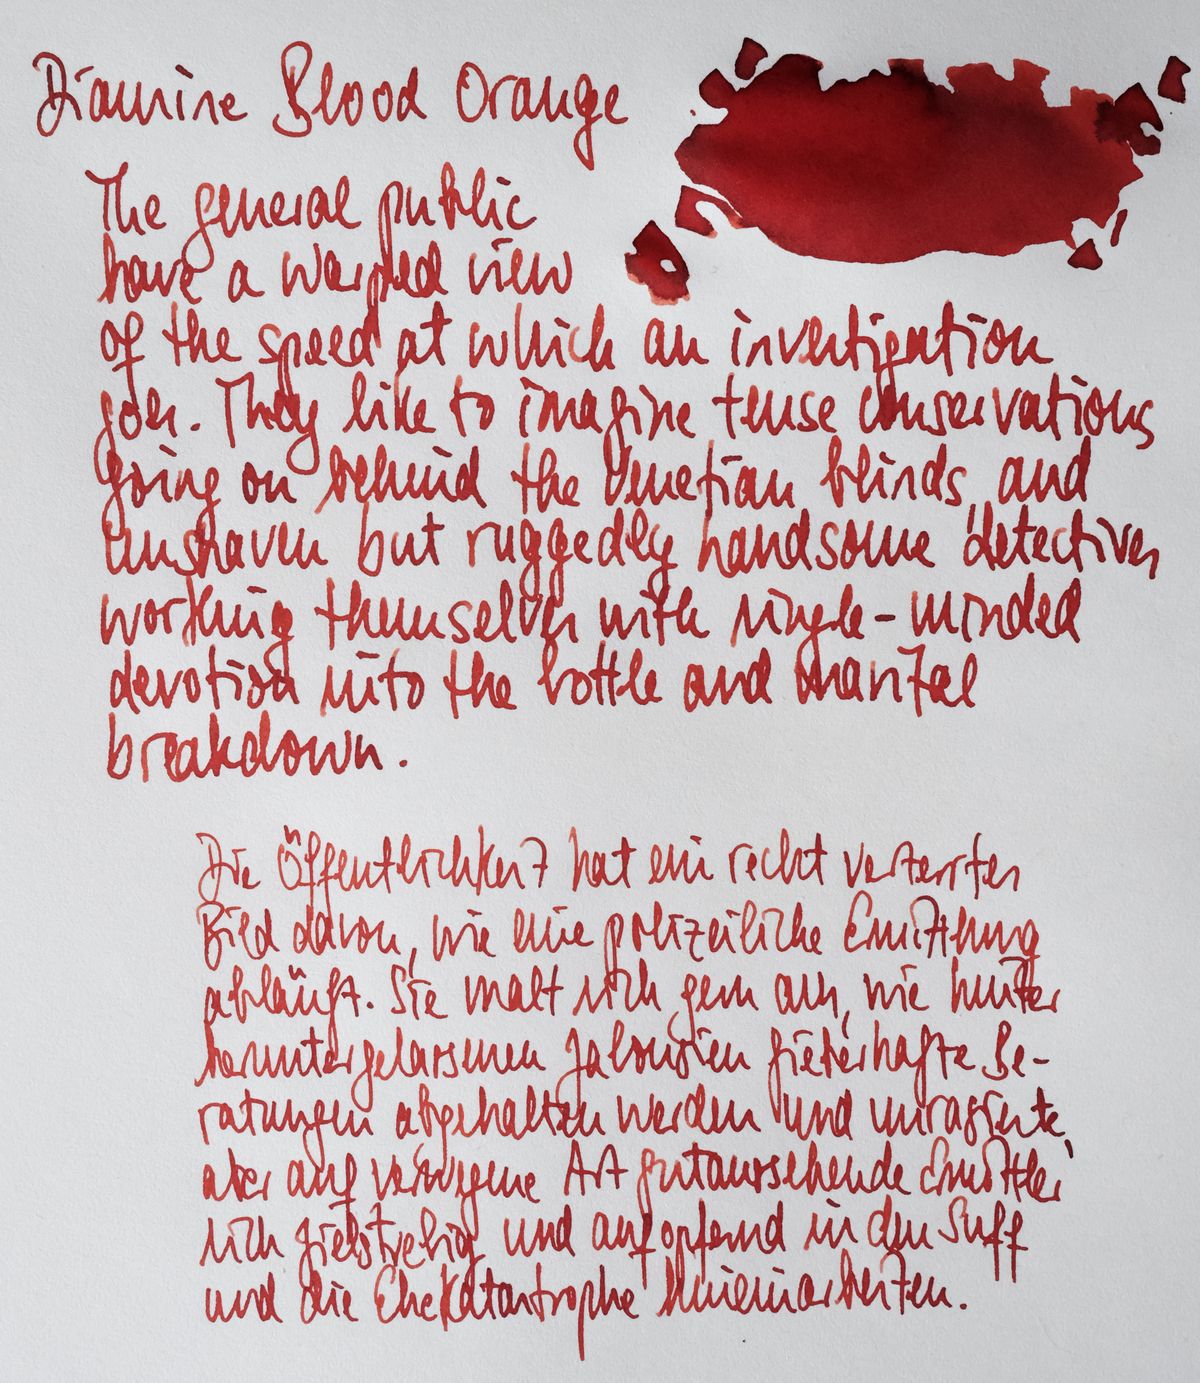 Diamine Blood Orange
The general public
have a warped view
of the speed at which an investigation
goes. They like to imagine tense conservations
going on behind the Venetian blinds, and
unshaven but ruggedly handsome detectives
working themselves with single-minded
devotion into the bottle and marital
breakdown.
Die Öffentlichkeit hat ein recht verzerrtes
Bild davon, wie eine polizeiliche Ermittlung
abläuft. Sie malt sich gern aus, wie hinter
heruntergelassenen Jalousien fieberhafte Be-
ratungen abgehalten werden und unrasierte,
aber auf verwegene Art gutaussehende Ermittler
sich zielstrebig und aufopfernd in den Suff
und die Ehekatastrophe hineinarbeiten.